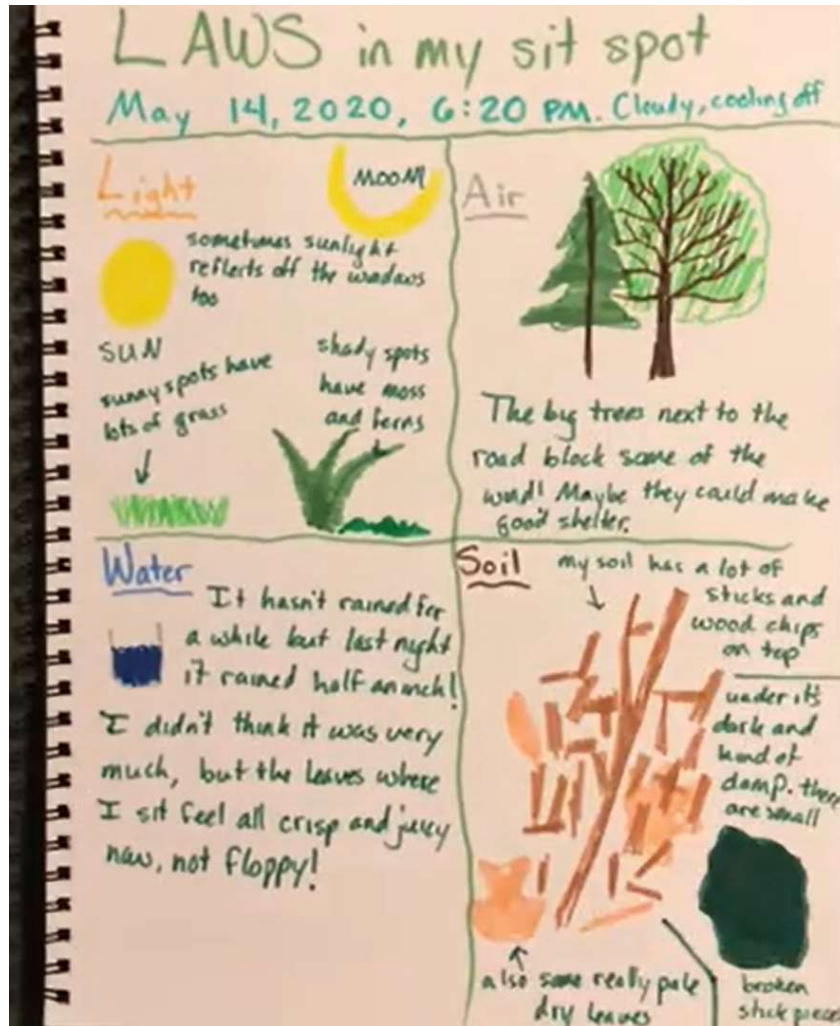 LAWS in my sit spot
May 14, 2020, 6:20 PM. Cloudy, cooling off
Light
MOON
sometimes sunlight
reflects off the windows
too
SUN
sunny spots have
lots of grass
shady spots
have moss
and ferns
Air
The big trees next to the
road block some of the
wind! Maybe they could make
good shelter.
Water
It hasn't rained for
a while but last night
it rained half an inch!
I didn't think it was very
much, but the leaves where
I sit feel all crisp and juicy
now, not floppy!
Soil
my soil has a lot of
sticks and
wood chips
on top
under it's
dark and
kind of
damp. there
are small
broken
stick pieces
also some really pale
dry leaves